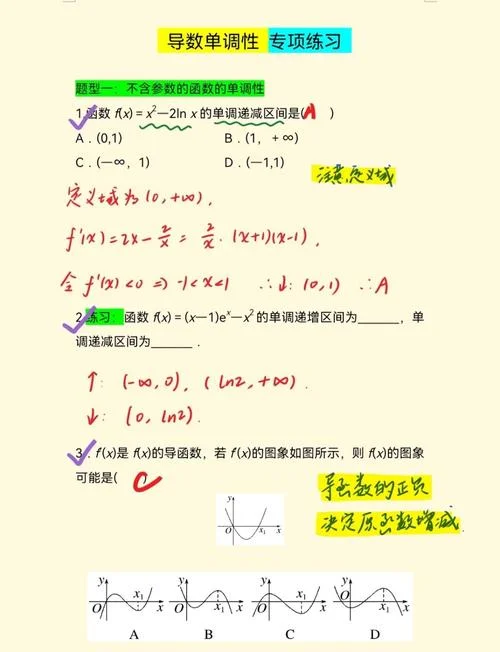 导数单调性 专项练习
题型一：不含参数的函数的单调性
1.函数 f(x)=x²—2ln x 的单调递减区间是( A )
A．(0,1) B．(1，+∞)
C．(—∞，1) D．(—1,1)
注意定义域
定义域为(0,+∞),
f'(x)=2x-2/x=2/x·(x+1)(x-1),
令 f'(x)<0 ⇒ -1<x<1 ∴↓: (0,1) ∴A
2.练习：函数 f(x)=(x—1)eˣ—x² 的单调递增区间为______，单
调递减区间为______．
↑: (-∞,0), (ln2,+∞).
↓: (0, ln2).
3．f'(x)是 f(x)的导函数，若 f'(x)的图象如图所示，则 f(x)的图象
可能是( C
导函数的正负
决定原函数增减
y
O x₁ x
y y y y
x₁ x₁
O x O x₁ x O x₁ x O x
A B C D